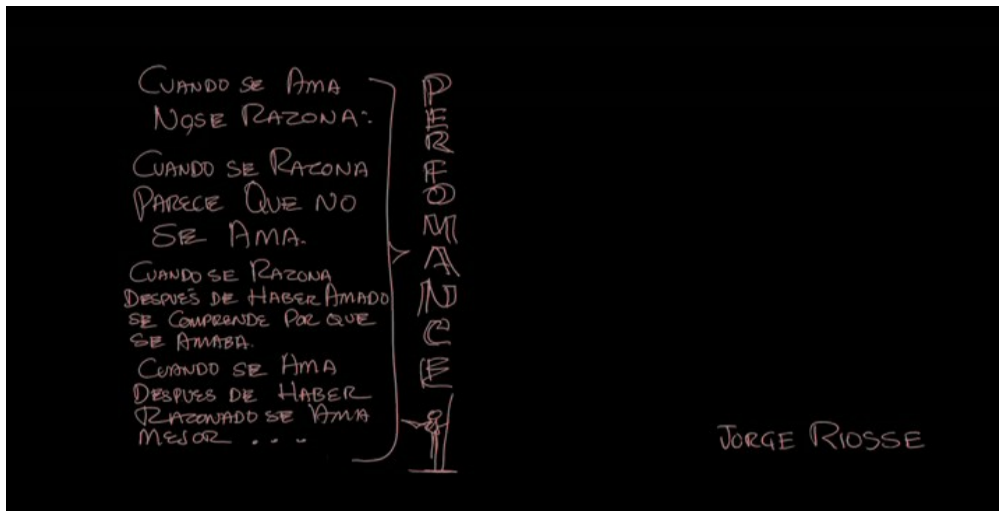 CUANDO SE AMA
NO SE RAZONA:
CUANDO SE RAZONA
PARECE QUE NO
SE AMA.
CUANDO SE RAZONA
DESPUÉS DE HABER AMADO
SE COMPRENDE POR QUE
SE AMABA.
CUANDO SE AMA
DESPUES DE HABER
RAZONADO SE AMA
MEJOR ....
PERFOMANCE
JORGE RIOSSE